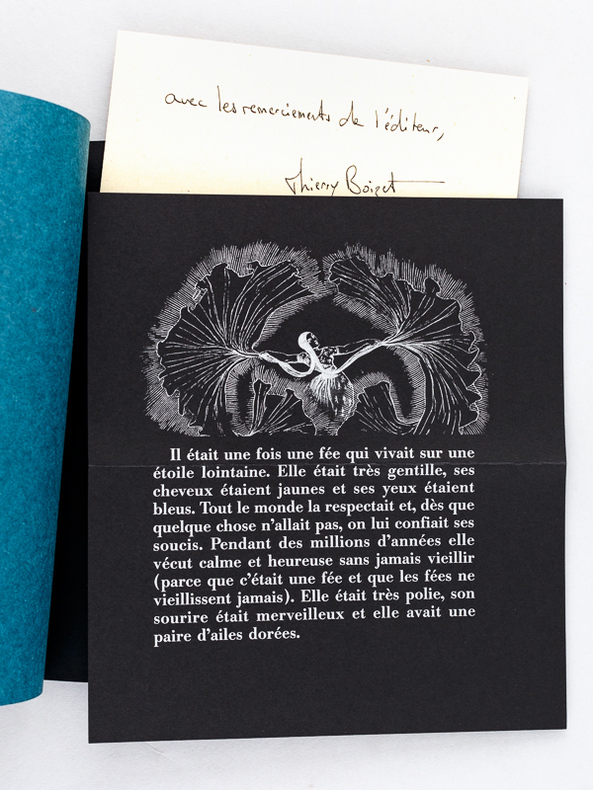 avec les remerciements de l'éditeur,
Thierry Boizet
Il était une fois une fée qui vivait sur une
étoile lointaine. Elle était très gentille, ses
cheveux étaient jaunes et ses yeux étaient
bleus. Tout le monde la respectait et, dès que
quelque chose n'allait pas, on lui confiait ses
soucis. Pendant des millions d'années elle
vécut calme et heureuse sans jamais vieillir
(parce que c'était une fée et que les fées ne
vieillissent jamais). Elle était très polie, son
sourire était merveilleux et elle avait une
paire d'ailes dorées.